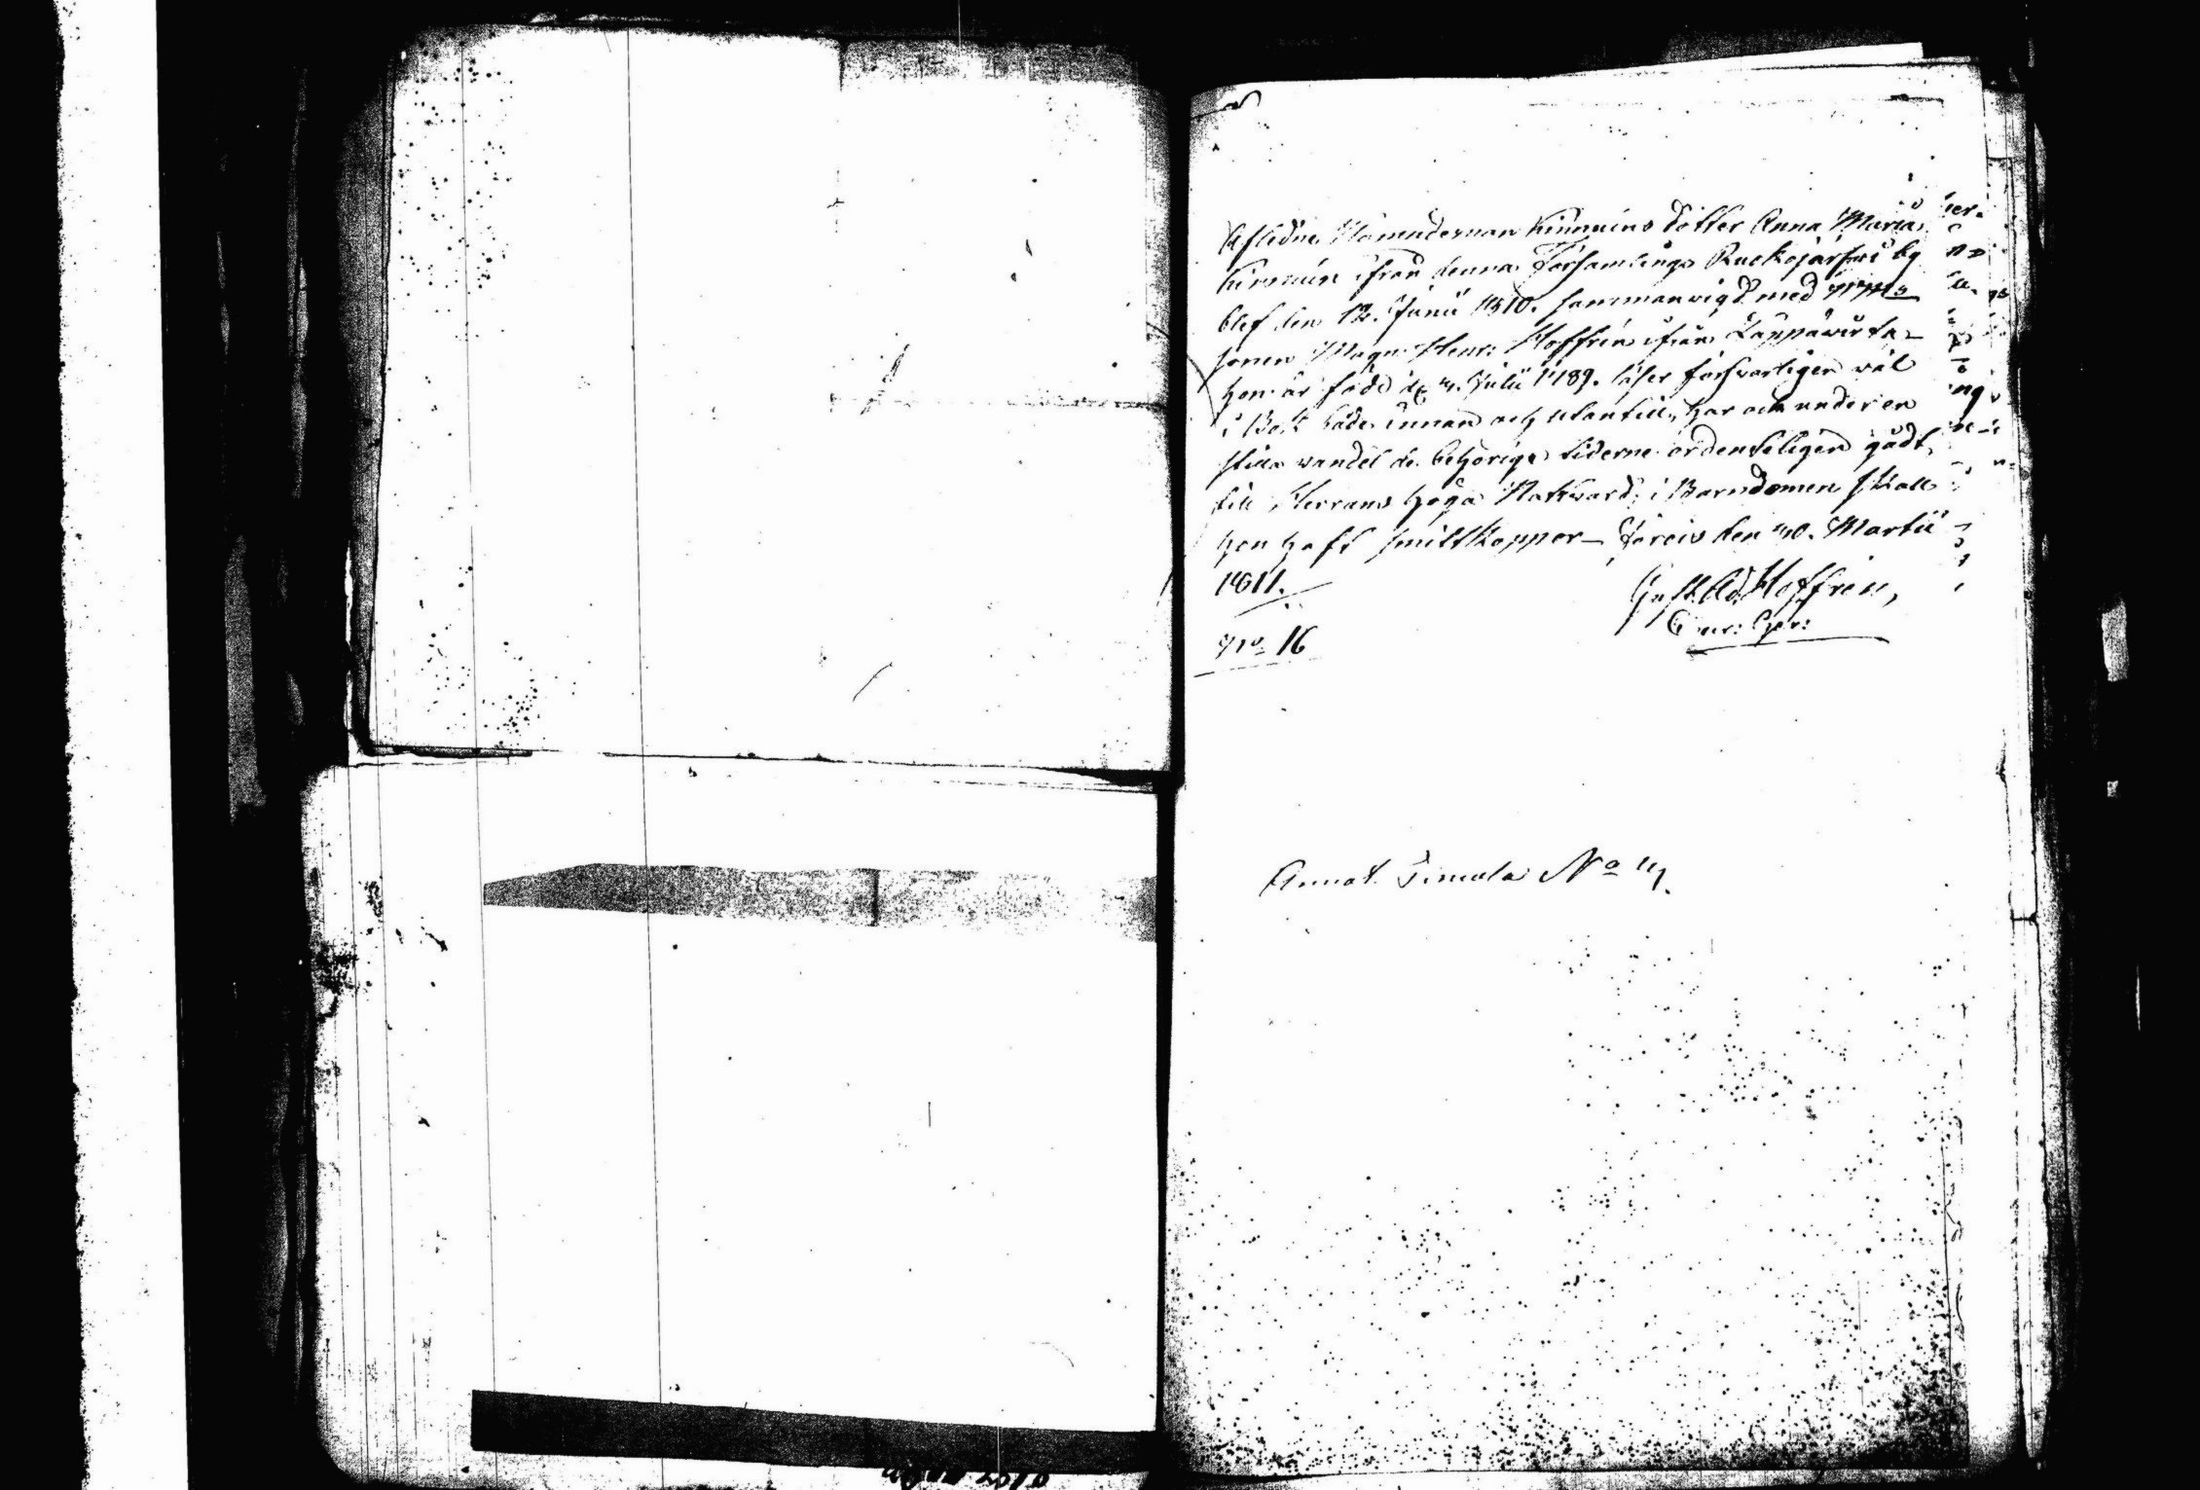 Afledne Nämndeman Kinnuins dotter Anna Maria
Kinnuin ifrån denna Församlings Ruokojärfwi by
blef den 12. Junii 1810. sammanvigd med
sonen Magn: Henr: Hoffrén ifrån Lappawirta_
hon är född d. Julii 1789. läser försvarligen väl
i Bok både innan och utantill, har och under en
stilla vandel de behörige tiderne ordenteligen gådt
till Herrans höga Nattvard; i Barndomen skall
hon haft smittkoppor_ Jorois den 30. Martii
1811.
Gust. Ad. Hoffrén,
N:o 16
Annot. Timola No